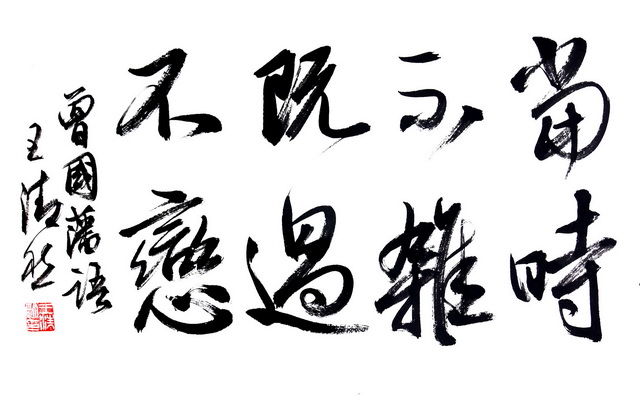 當時
不雜
既過
不戀
曾國藩語
王